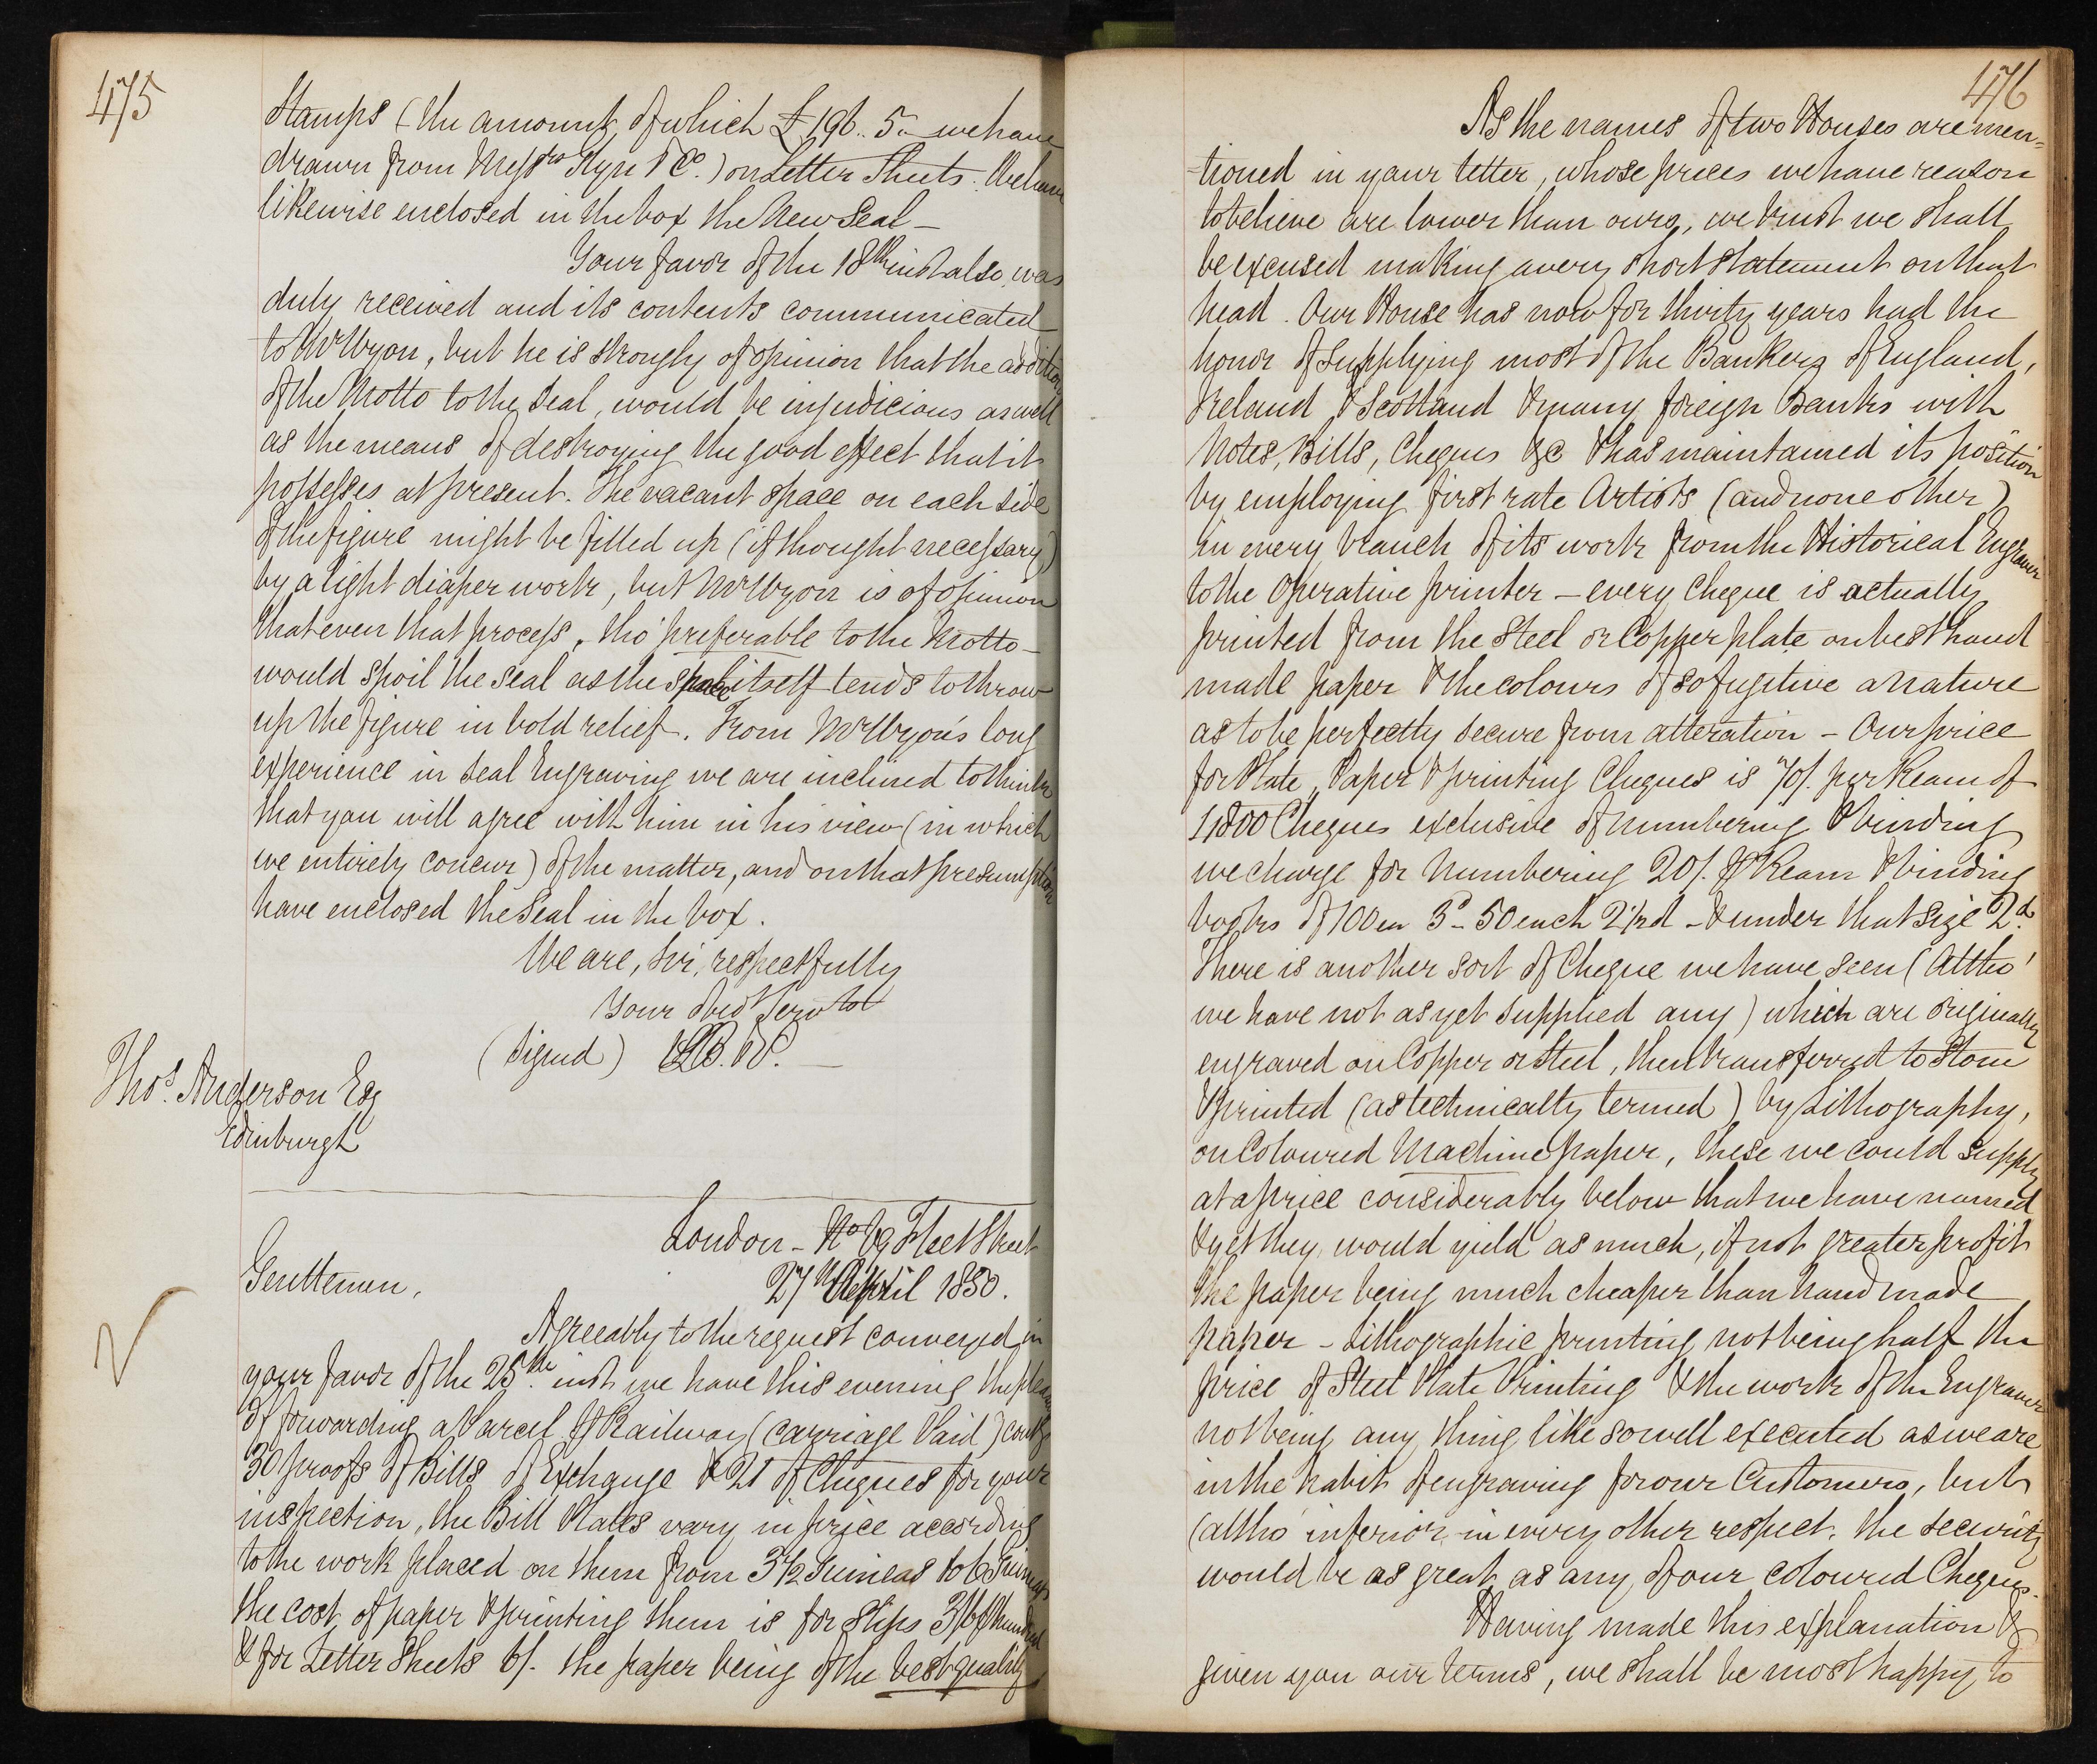 475
Stamps (the amount of which £196.. 5.. we have
drawn from Messrs Glyn & Co.) on Letter Sheets. We have
likewise enclosed in the box the New Seal —
Your favor of the 18th inst also was
duly received and its contents communicated
to Mr Wyon, but he is strongly of opinion that the addition
of the Motto to the Seal, would be injudicious as well
as the means of destroying the good effect that it
possesses at present. The vacant space on each side
of the figure might be filled up (if thought necessary)
by a light diaper work, but Mr Wyon is of opinion
that even that process, tho' preferable to the Motto —
would spoil the Seal as the space itself tends to throw
up the figure in bold relief. From Mr Wyon's long
experience in Seal Engraving we are inclined to think
that you will agree with him in his view (in which
we entirely concur) of the matter, and on that presumption
have enclosed the Seal in the box.
We are, Sir, respectfully
Your obed Servts
(Signed)
Thos. Anderson Esq
Edinburgh
London – No 69 Fleet Street
27th April 1850.
Gentlemen,
Agreeably to the request conveyed in
your favor of the 25th. inst we have this evening the pleasure
of forwarding a Parcel P Railway (carriage Paid) contg
30 proofs of Bills of Exchange & 21 of Cheques for your
inspection, the Bill Plates vary in price according
to the work placed on them from 3½ Guineas to 6 Guineas
the cost of paper & printing them is for Slips 3/6 P hundred
& for Letter Sheets 6/. the paper being of the best quality
476
As the names of two Houses are men=
=tioned in your letter, whose prices we have reason
to believe are lower than ours, we trust we shall
be excused making a very short statement on that
head. Our House has now for thirty years had the
honor of supplying most of the Bankers of England,
Ireland & Scotland & many foreign Banks with
Notes, Bills, Cheques &c & has maintained its position
by employing first rate Artists (and none other)
in every branch of its work from the Historical Engraver
to the Operative printer – every Cheque is actually
printed from the Steel or Copper plate on best hand
made paper & the colours of so fugitive a nature
as to be perfectly secure from alteration – Our price
for Plate, Paper & printing Cheques is 70/. per Ream of
1,800 Cheques exclusive of numbering & binding
we charge for Numbering 20/. P Ream & binding
books of 100 ea 3d – 50 each 2½d – & under that size 2d.
There is another sort of Cheque we have seen (Altho'
we have not as yet supplied any) which are originally
engraved on Copper or Steel, then transferred to Stone
& printed (as technically termed) by Lithography,
on Coloured Machine paper, these we could supply
at a price considerably below that we have named
& yet they would yield as much, if not greater profit
the paper being much cheaper than hand made
paper – Lithographic printing not being half the
price of Steel Plate Printing & the work of the Engraver
not being any thing like so well executed as we are
in the habit of engraving for our Customers, but
(altho' inferior in every other respect. the security
would be as great as any of our coloured Cheques.
Having made this explanation &
given you our terms, we shall be most happy to